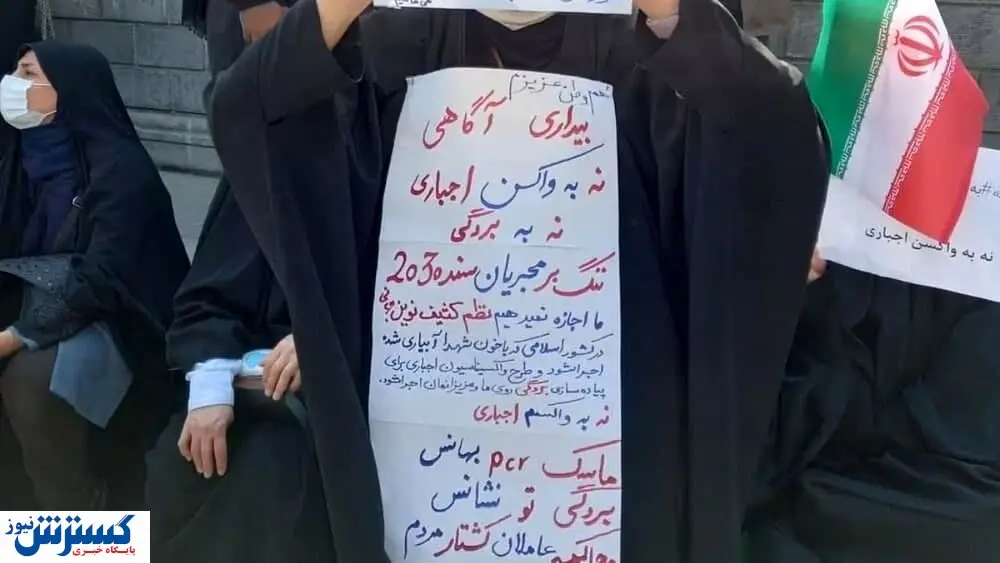 هم وطن عزیزم
بیداری آگاهی
نه به واکسن اجباری
نه به بردگی
ننگ بر مجریان سند 2030
ما اجازه نمیدهیم نظم کثیف نوین جهانی
در کشور اسلامی که با خون شهدا آبیاری شده
اجرا شود و طرح واکسیناسیون اجباری برای
پیاده سازی بردگی روی ما و عزیزانمان اجرا شود.
نه به واکسن اجباری
ماسک pcr بهانس
بردگی تو نشانس
عاملان کشتار مردم
نه به واکسن اجباری
گسترش نیوز
پایگاه خبری